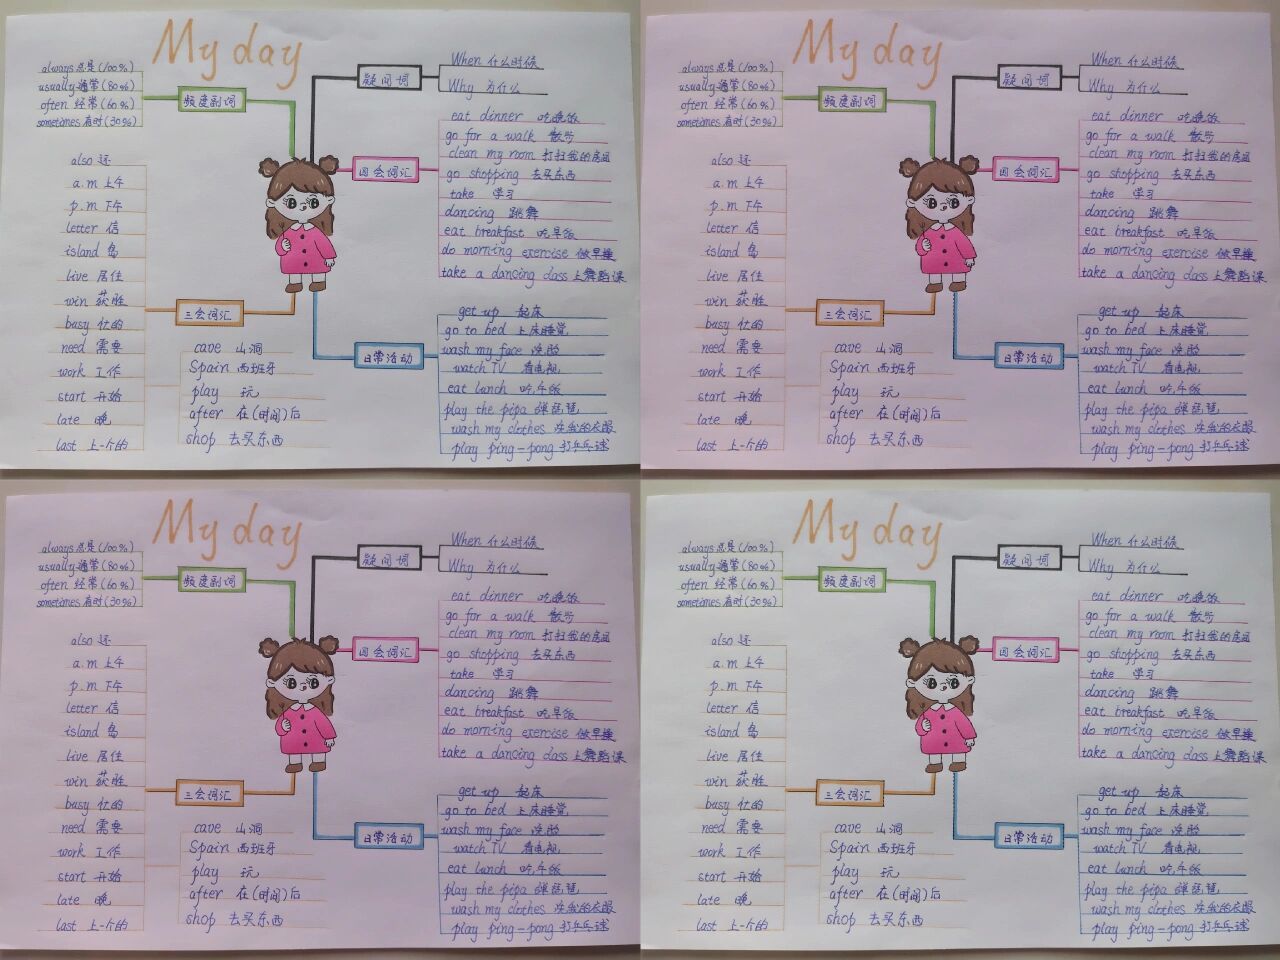 My day
always 总是(100%)
usually 通常(80%)
often 经常(60%)
sometimes 有时(30%)
频度副词
疑问词
When 什么时候
Why 为什么
四会词汇
eat dinner 吃晚饭
go for a walk 散步
clean my room 打扫我的房间
go shopping 去买东西
take 学习
dancing 跳舞
eat breakfast 吃早饭
do morning exercise 做早操
take a dancing class 上舞蹈课
also 还
a.m 上午
p.m 下午
letter 信
island 岛
live 居住
win 获胜
busy 忙的
need 需要
work 工作
start 开始
late 晚
last 上一个的
三会词汇
cave 山洞
Spain 西班牙
play 玩
after 在(时间)后
shop 去买东西
日常活动
get up 起床
go to bed 上床睡觉
wash my face 洗脸
watch TV 看电视
eat lunch 吃午饭
play the pipa 弹琵琶
wash my clothes 洗我的衣服
play ping-pong 打乒乓球
My day
always 总是(100%)
usually 通常(80%)
often 经常(60%)
sometimes 有时(30%)
频度副词
疑问词
When 什么时候
Why 为什么
四会词汇
eat dinner 吃晚饭
go for a walk 散步
clean my room 打扫我的房间
go shopping 去买东西
take 学习
dancing 跳舞
eat breakfast 吃早饭
do morning exercise 做早操
take a dancing class 上舞蹈课
also 还
a.m 上午
p.m 下午
letter 信
island 岛
live 居住
win 获胜
busy 忙的
need 需要
work 工作
start 开始
late 晚
last 上一个的
三会词汇
cave 山洞
Spain 西班牙
play 玩
after 在(时间)后
shop 去买东西
日常活动
get up 起床
go to bed 上床睡觉
wash my face 洗脸
watch TV 看电视
eat lunch 吃午饭
play the pipa 弹琵琶
wash my clothes 洗我的衣服
play ping-pong 打乒乓球
My day
always 总是(100%)
usually 通常(80%)
often 经常(60%)
sometimes 有时(30%)
频度副词
疑问词
When 什么时候
Why 为什么
四会词汇
eat dinner 吃晚饭
go for a walk 散步
clean my room 打扫我的房间
go shopping 去买东西
take 学习
dancing 跳舞
eat breakfast 吃早饭
do morning exercise 做早操
take a dancing class 上舞蹈课
also 还
a.m 上午
p.m 下午
letter 信
island 岛
live 居住
win 获胜
busy 忙的
need 需要
work 工作
start 开始
late 晚
last 上一个的
三会词汇
cave 山洞
Spain 西班牙
play 玩
after 在(时间)后
shop 去买东西
日常活动
get up 起床
go to bed 上床睡觉
wash my face 洗脸
watch TV 看电视
eat lunch 吃午饭
play the pipa 弹琵琶
wash my clothes 洗我的衣服
play ping-pong 打乒乓球
My day
always 总是(100%)
usually 通常(80%)
often 经常(60%)
sometimes 有时(30%)
频度副词
疑问词
When 什么时候
Why 为什么
四会词汇
eat dinner 吃晚饭
go for a walk 散步
clean my room 打扫我的房间
go shopping 去买东西
take 学习
dancing 跳舞
eat breakfast 吃早饭
do morning exercise 做早操
take a dancing class 上舞蹈课
also 还
a.m 上午
p.m 下午
letter 信
island 岛
live 居住
win 获胜
busy 忙的
need 需要
work 工作
start 开始
late 晚
last 上一个的
三会词汇
cave 山洞
Spain 西班牙
play 玩
after 在(时间)后
shop 去买东西
日常活动
get up 起床
go to bed 上床睡觉
wash my face 洗脸
watch TV 看电视
eat lunch 吃午饭
play the pipa 弹琵琶
wash my clothes 洗我的衣服
play ping-pong 打乒乓球